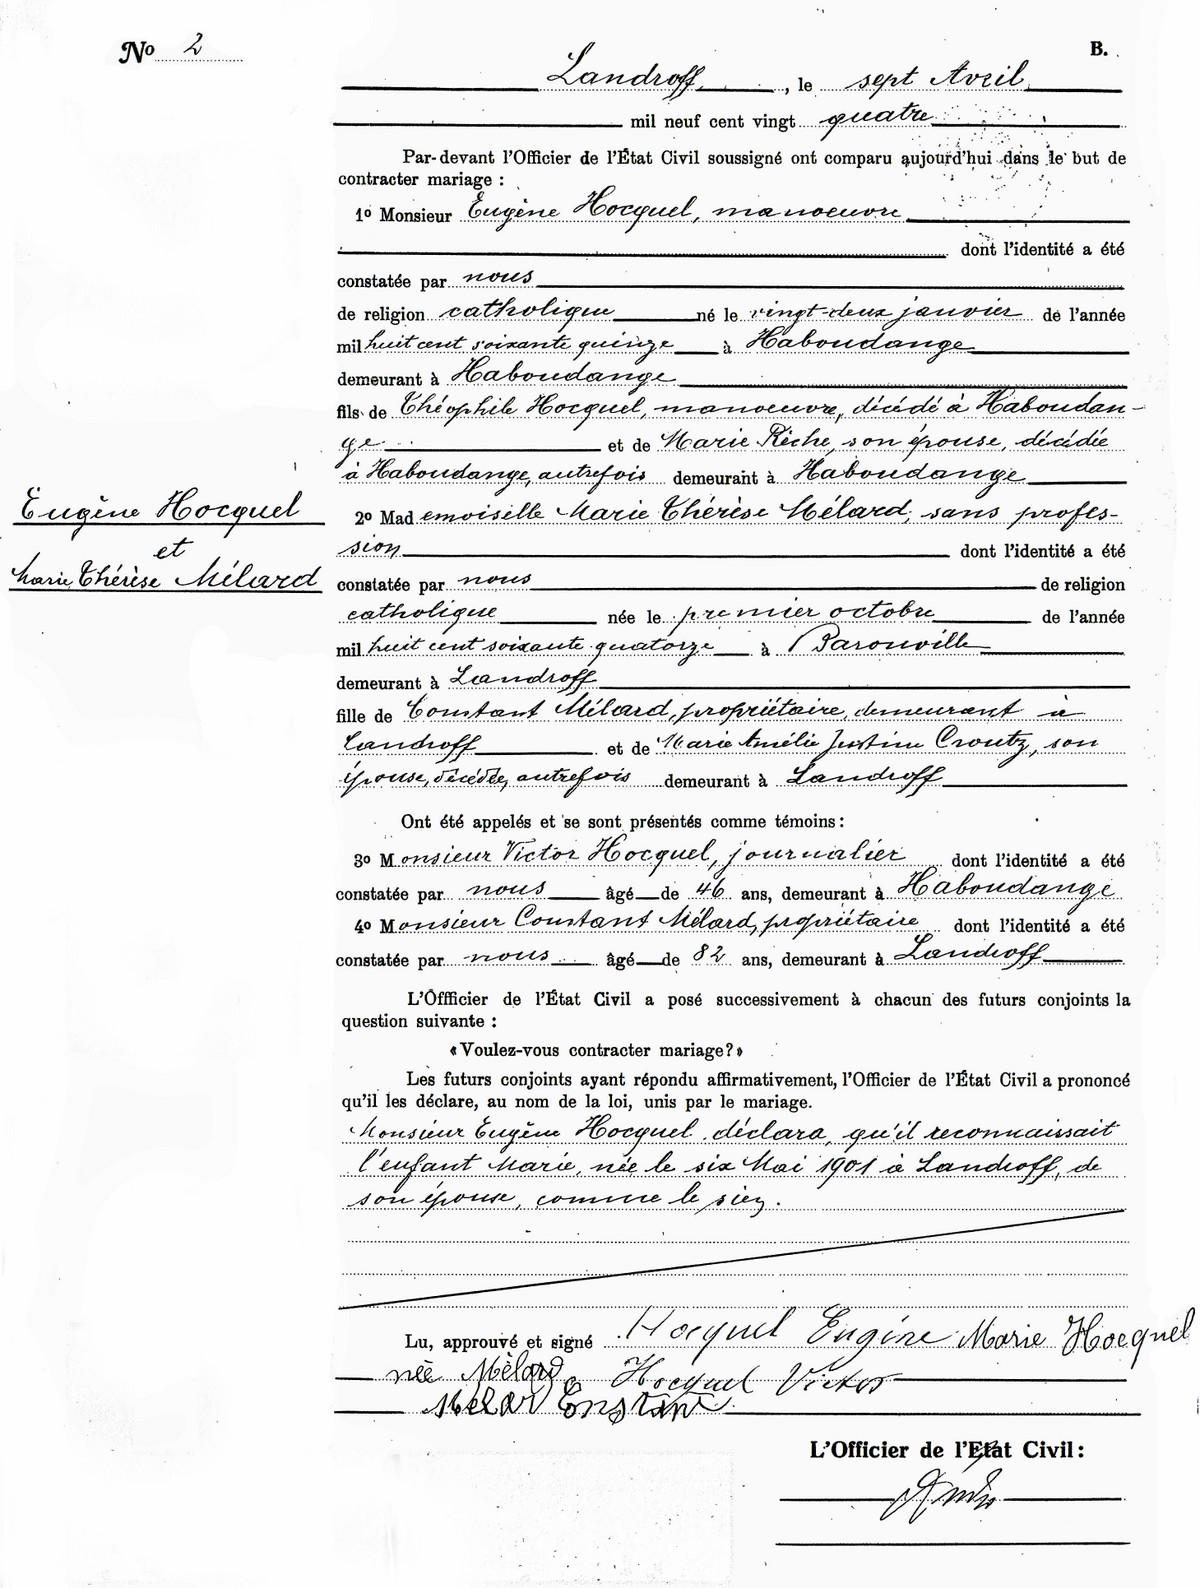 No 2
B.
Landroff, le sept Avril
mil neuf cent vingt quatre
Par-devant l'Officier de l'État Civil soussigné ont comparu aujourd'hui dans le but de
contracter mariage :
1o Monsieur Eugène Hocquel, manoeuvre
dont l'identité a été
constatée par nous
de religion catholique né le vingt-deux janvier de l'année
mil huit cent soixante quinze à Haboudange
demeurant à Haboudange
fils de Théophile Hocquel, manoeuvre, décédé à Haboudan-
ge et de Marie Riche, son épouse, décédée
à Haboudange, autrefois demeurant à Haboudange
Eugène Hocquel
et
Marie Thérèse Mélard
2o Mademoiselle Marie Thérèse Mélard, sans profes-
sion dont l'identité a été
constatée par nous de religion
catholique née le premier octobre de l'année
mil huit cent soixante quatorze à Baronville
demeurant à Landroff
fille de Constant Mélard, propriétaire, demeurant à
Landroff et de Marie Amélie Justine Croutz, son
épouse, décédée, autrefois demeurant à Landroff
Ont été appelés et se sont présentés comme témoins :
3o Monsieur Victor Hocquel, journalier dont l'identité a été
constatée par nous âgé de 46 ans, demeurant à Haboudange
4o Monsieur Constant Mélard, propriétaire dont l'identité a été
constatée par nous âgé de 82 ans, demeurant à Landroff
L'Officier de l'État Civil a posé successivement à chacun des futurs conjoints la
question suivante :
«Voulez-vous contracter mariage?»
Les futurs conjoints ayant répondu affirmativement, l'Officier de l'État Civil a prononcé
qu'il les déclare, au nom de la loi, unis par le mariage.
Monsieur Eugène Hocquel déclara, qu'il reconnaissait
l'enfant Marie, née le six Mai 1901 à Landroff, de
son épouse, comme le sien.
Lu, approuvé et signé Hocquel Eugène Marie Hocquel
née Mélard Hocquel Victor
Melard Constant
L'Officier de l'Etat Civil :